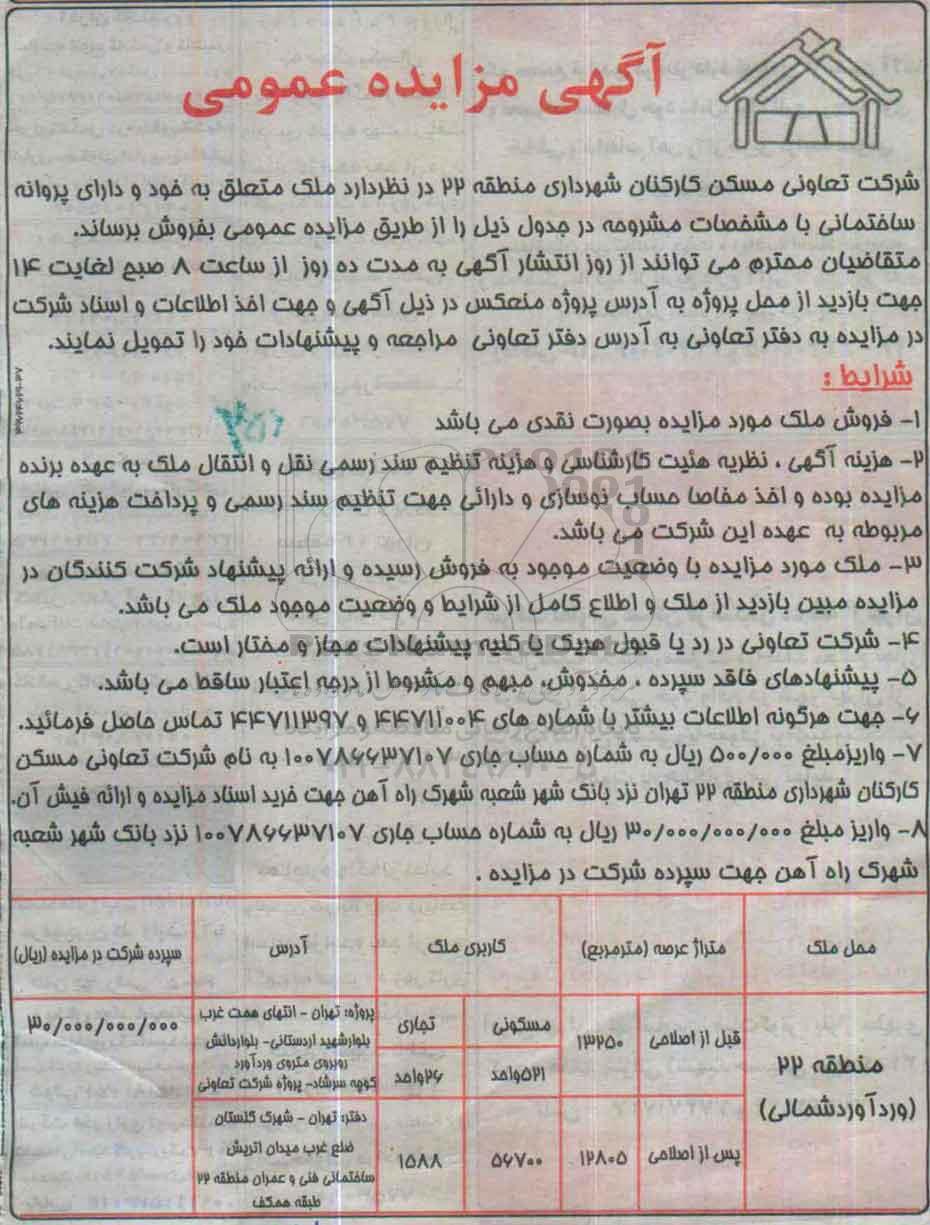 آگهی مزایده عمومی
شرکت تعاونی مسکن کارکنان شهرداری منطقه ۲۲ در نظردارد ملک متعلق به خود و دارای پروانه
ساختمانی با مشخصات مشروحه در جدول ذیل را از طریق مزایده عمومی بفروش برساند.
متقاضیان محترم می توانند از روز انتشار آگهی به مدت ده روز از ساعت ۸ صبح لغایت ۱۴
جهت بازدید از محل پروژه به آدرس پروژه منعکس در ذیل آگهی و جهت اخذ اطلاعات و اسناد شرکت
در مزایده به دفتر تعاونی به آدرس دفتر تعاونی مراجعه و پیشنهادات خود را تحویل نمایند.
شرایط :
۱- فروش ملک مورد مزایده بصورت نقدی می باشد
۲- هزینه آگهی ، نظریه هئیت کارشناسی و هزینه تنظیم سند رسمی نقل و انتقال ملک به عهده برنده
مزایده بوده و اخذ مفاصا حساب نوسازی و دارائی جهت تنظیم سند رسمی و پرداخت هزینه های
مربوطه به عهده این شرکت می باشد.
۳- ملک مورد مزایده با وضعیت موجود به فروش رسیده و ارائه پیشنهاد شرکت کنندگان در
مزایده مبین بازدید از ملک و اطلاع کامل از شرایط و وضعیت موجود ملک می باشد.
۴- شرکت تعاونی در رد یا قبول هریک یا کلیه پیشنهادات مجاز و مختار است.
۵- پیشنهادهای فاقد سپرده ، مخدوش، مبهم و مشروط از درجه اعتبار ساقط می باشد.
۶- جهت هرگونه اطلاعات بیشتر با شماره های ۴۴۷۱۱۰۰۴ و ۴۴۷۱۱۳۹۷ تماس حاصل فرمائید.
۷- واریزمبلغ ۵۰۰/۰۰۰ ریال به شماره حساب جاری ۱۰۰۷۸۶۶۳۷۱۰۷ به نام شرکت تعاونی مسکن
کارکنان شهرداری منطقه ۲۲ تهران نزد بانک شهر شعبه شهرک راه آهن جهت خرید اسناد مزایده و ارائه فیش آن.
۸- واریز مبلغ ۳۰/۰۰۰/۰۰۰/۰۰۰ ریال به شماره حساب جاری ۱۰۰۷۸۶۶۳۷۱۰۷ نزد بانک شهر شعبه
شهرک راه آهن جهت سپرده شرکت در مزایده .
محل ملک متراژ عرصه (مترمربع) کاربری ملک آدرس سپرده شرکت در مزایده (ریال)
منطقه ۲۲
(وردآوردشمالی)
قبل از اصلاحی ۱۳۲۵۰
مسکونی تجاری
۵۲۱واحد ۲۶واحد
پروژه: تهران - انتهای همت غرب
بلوارشهید اردستانی- بلواردانش
روبروی متروی وردآورد
کوچه سرشاد- پروژه شرکت تعاونی
۳۰/۰۰۰/۰۰۰/۰۰۰
پس از اصلاحی ۱۲۸۰۵ ۵۶۷۰۰ ۱۵۸۸
دفتر: تهران - شهرک گلستان
ضلع غرب میدان اتریش
ساختمانی فنی و عمران منطقه ۲۲
طبقه همکف